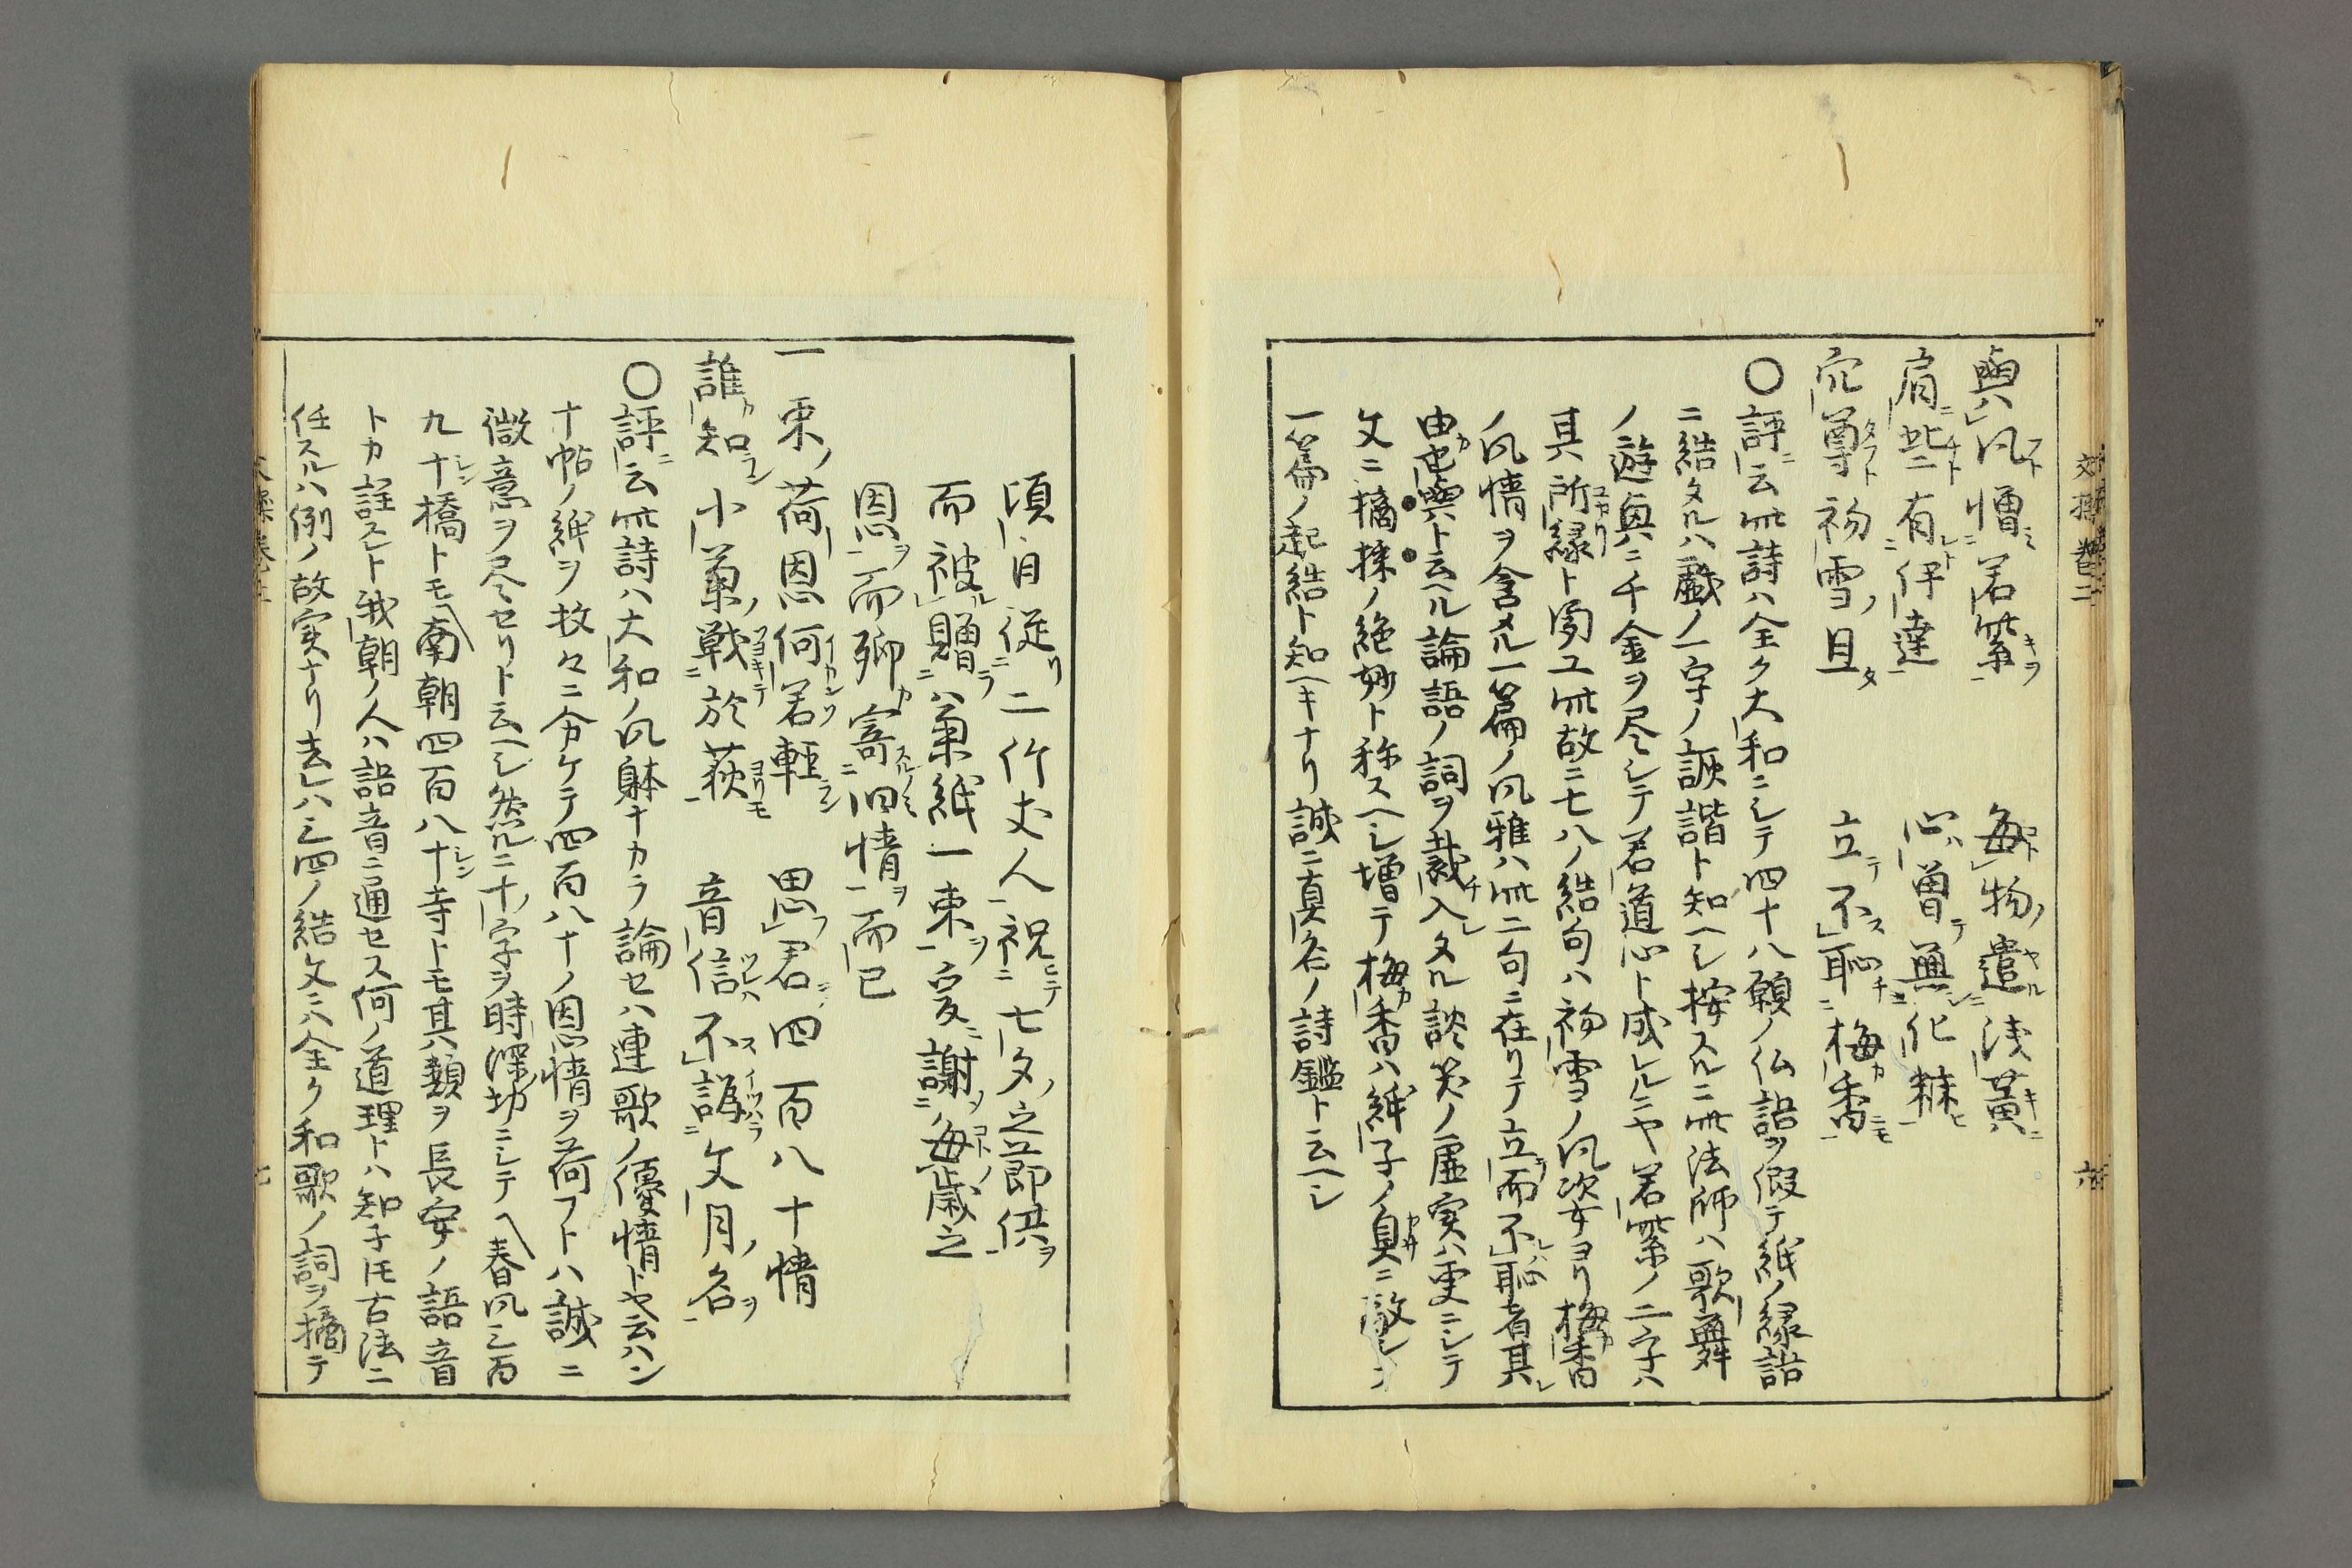 與風憎若紫　毎物遣浅黄
肩些有伊達　心曽無化粧
冗尊初雪且　立不恥梅香
○評云此詩ハ全ク大和ニシテ四十八願ノ仏語ヲ假テ紙ノ縁語
ニ結タルハ戯ノ一字ノ誹諧ト知ヘシ按スルニ此法師ハ歌舞
ノ遊興ニ千金ヲ尽シテ若道心ト成レルニヤ若紫ノ二字ハ
其所縁ト聞ユ此故ニ七八ノ結句ハ初雪ノ風姿ヨリ梅香
ノ風情ヲ含メル一篇ノ風雅ハ此二句ニ在リテ立而不恥者其
由也與ト云ヘル論語ノ詞ヲ裁入タル談笑ノ虚実ハ更ニシテ
文ニ摘採ノ絶妙ト称スヘシ増テ梅香ハ紙子ノ臭ニ敵シ
一篇ノ起結ト知ヘキナリ誠ニ真名ノ詩鑑ト云ヘシ
頃日従二竹丈人祝七夕之立即供
而被贈菓紙一束爰謝毎歳之
恩而聊寄旧情而已
一束荷恩何若軽　思君四百八十情
誰知小菓戦於荻　音信不譌文月名
○評云此詩ハ大和ノ風躰ナカラ論セハ連歌ノ優情トヤ云ハン
十帖ノ紙ヲ枚々ニ分ケテ四百八十ノ恩情ヲ荷フトハ誠ニ
微意ヲ尽セリト云ヘシ然ルニ十字ヲ時深切ニシテヘ春風三百
九十橋トモヘ南朝四百八十寺トモ其類ヲ長安ノ語音
トカ註スレト我朝ノ人ハ語音ニ通セス何ノ道理トハ知子圧古法ニ
任スルハ例ノ故実ナリ去レハ三四ノ結文ニハ全ク和歌ノ詞ヲ摘テ